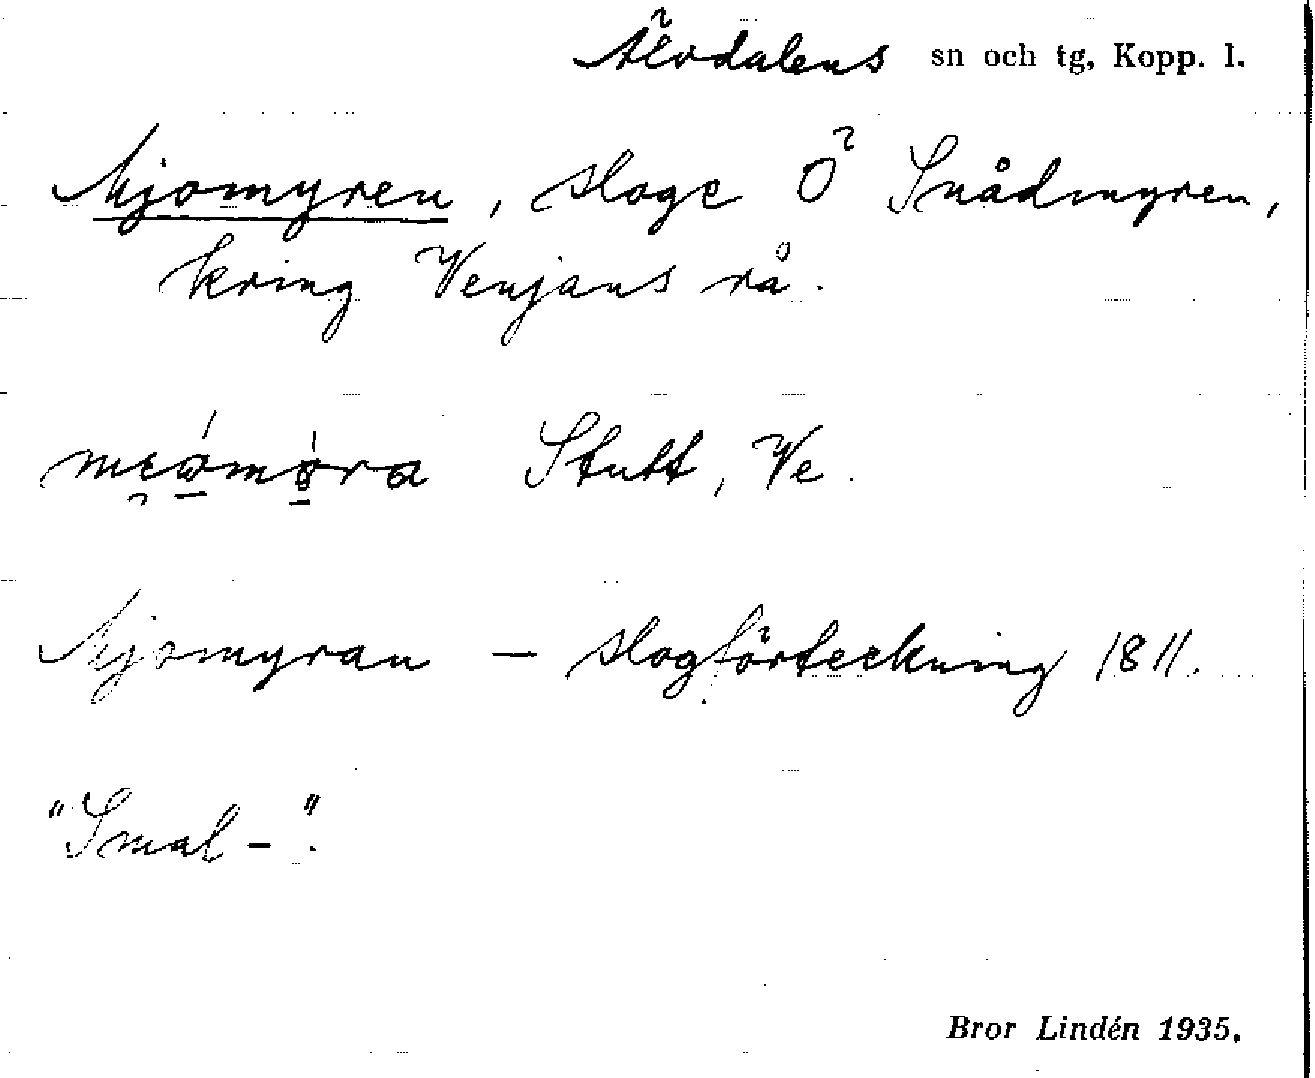 Älvdalens sn och tg, Kopp. l.
Mjomyren, sloge Ö Snådmyren,
kring Venjans rå.
Stutt, Ve.
Mjomyran — slogförteckning 1811.
"Smal-".
Bror Lindén 1935.